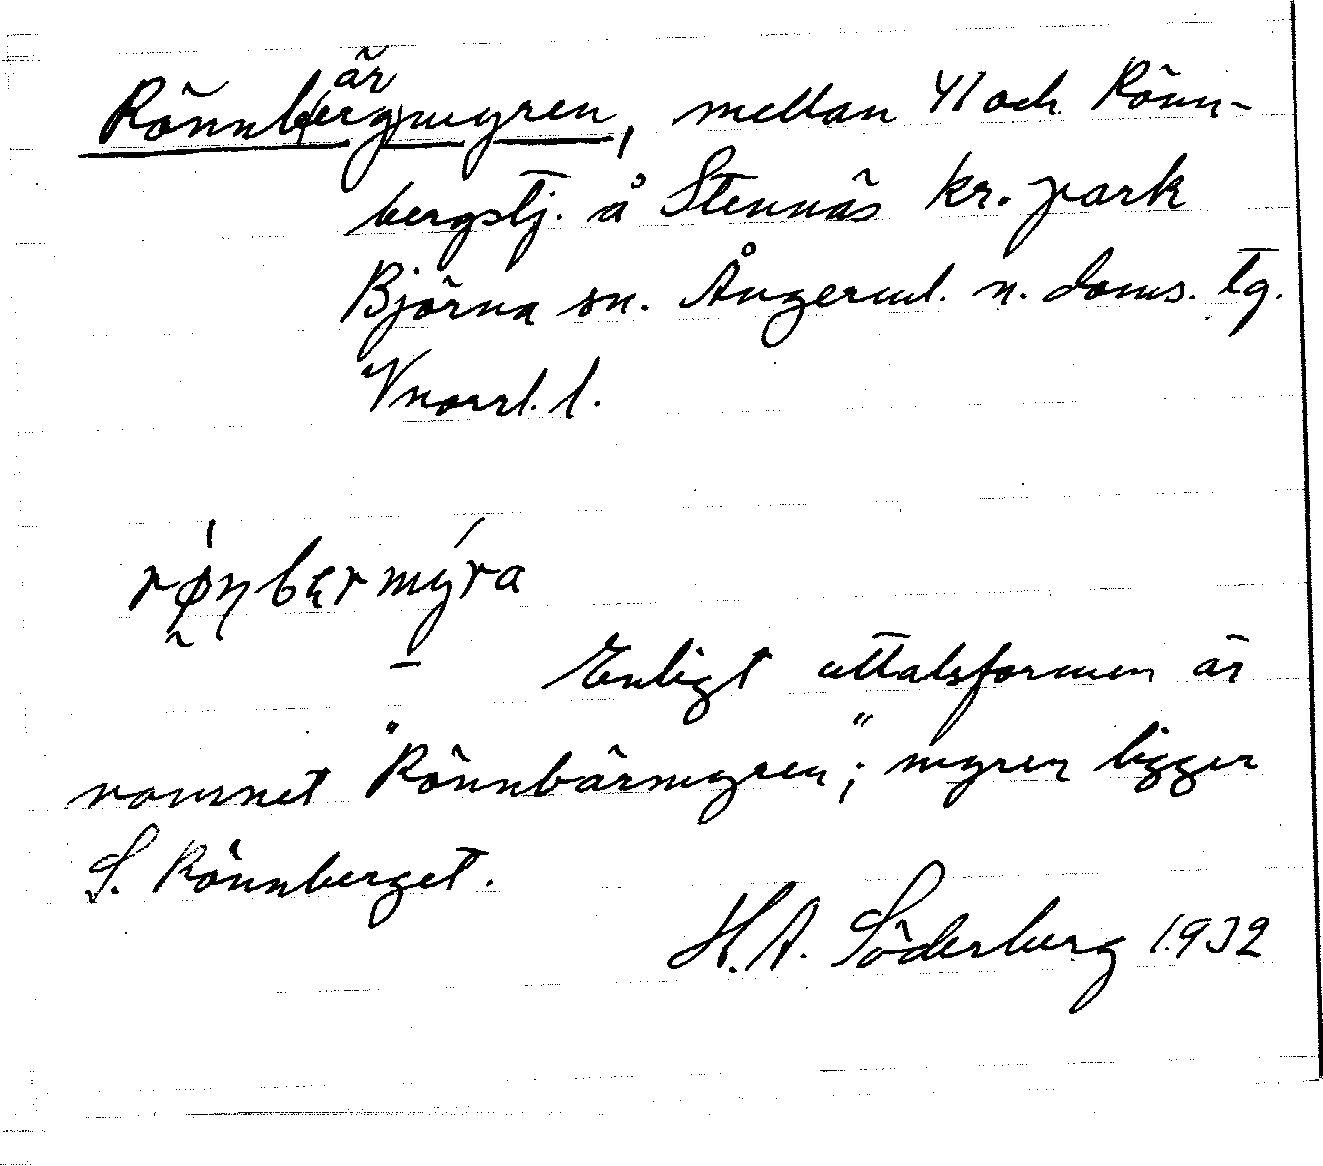 är
Rönnb(erg)myren, mellan 41 och Rönn-
bergstj. å Stennäs kr. park
Björna sn. Ångerml. n. doms. tg.
Vnorrl. l.
rǿnbęrmýra
Enligt uttalsformen är
namnet "Rönnbärmyren"; myren ligger
S. Rönnberget.
H. A. Söderberg 1932